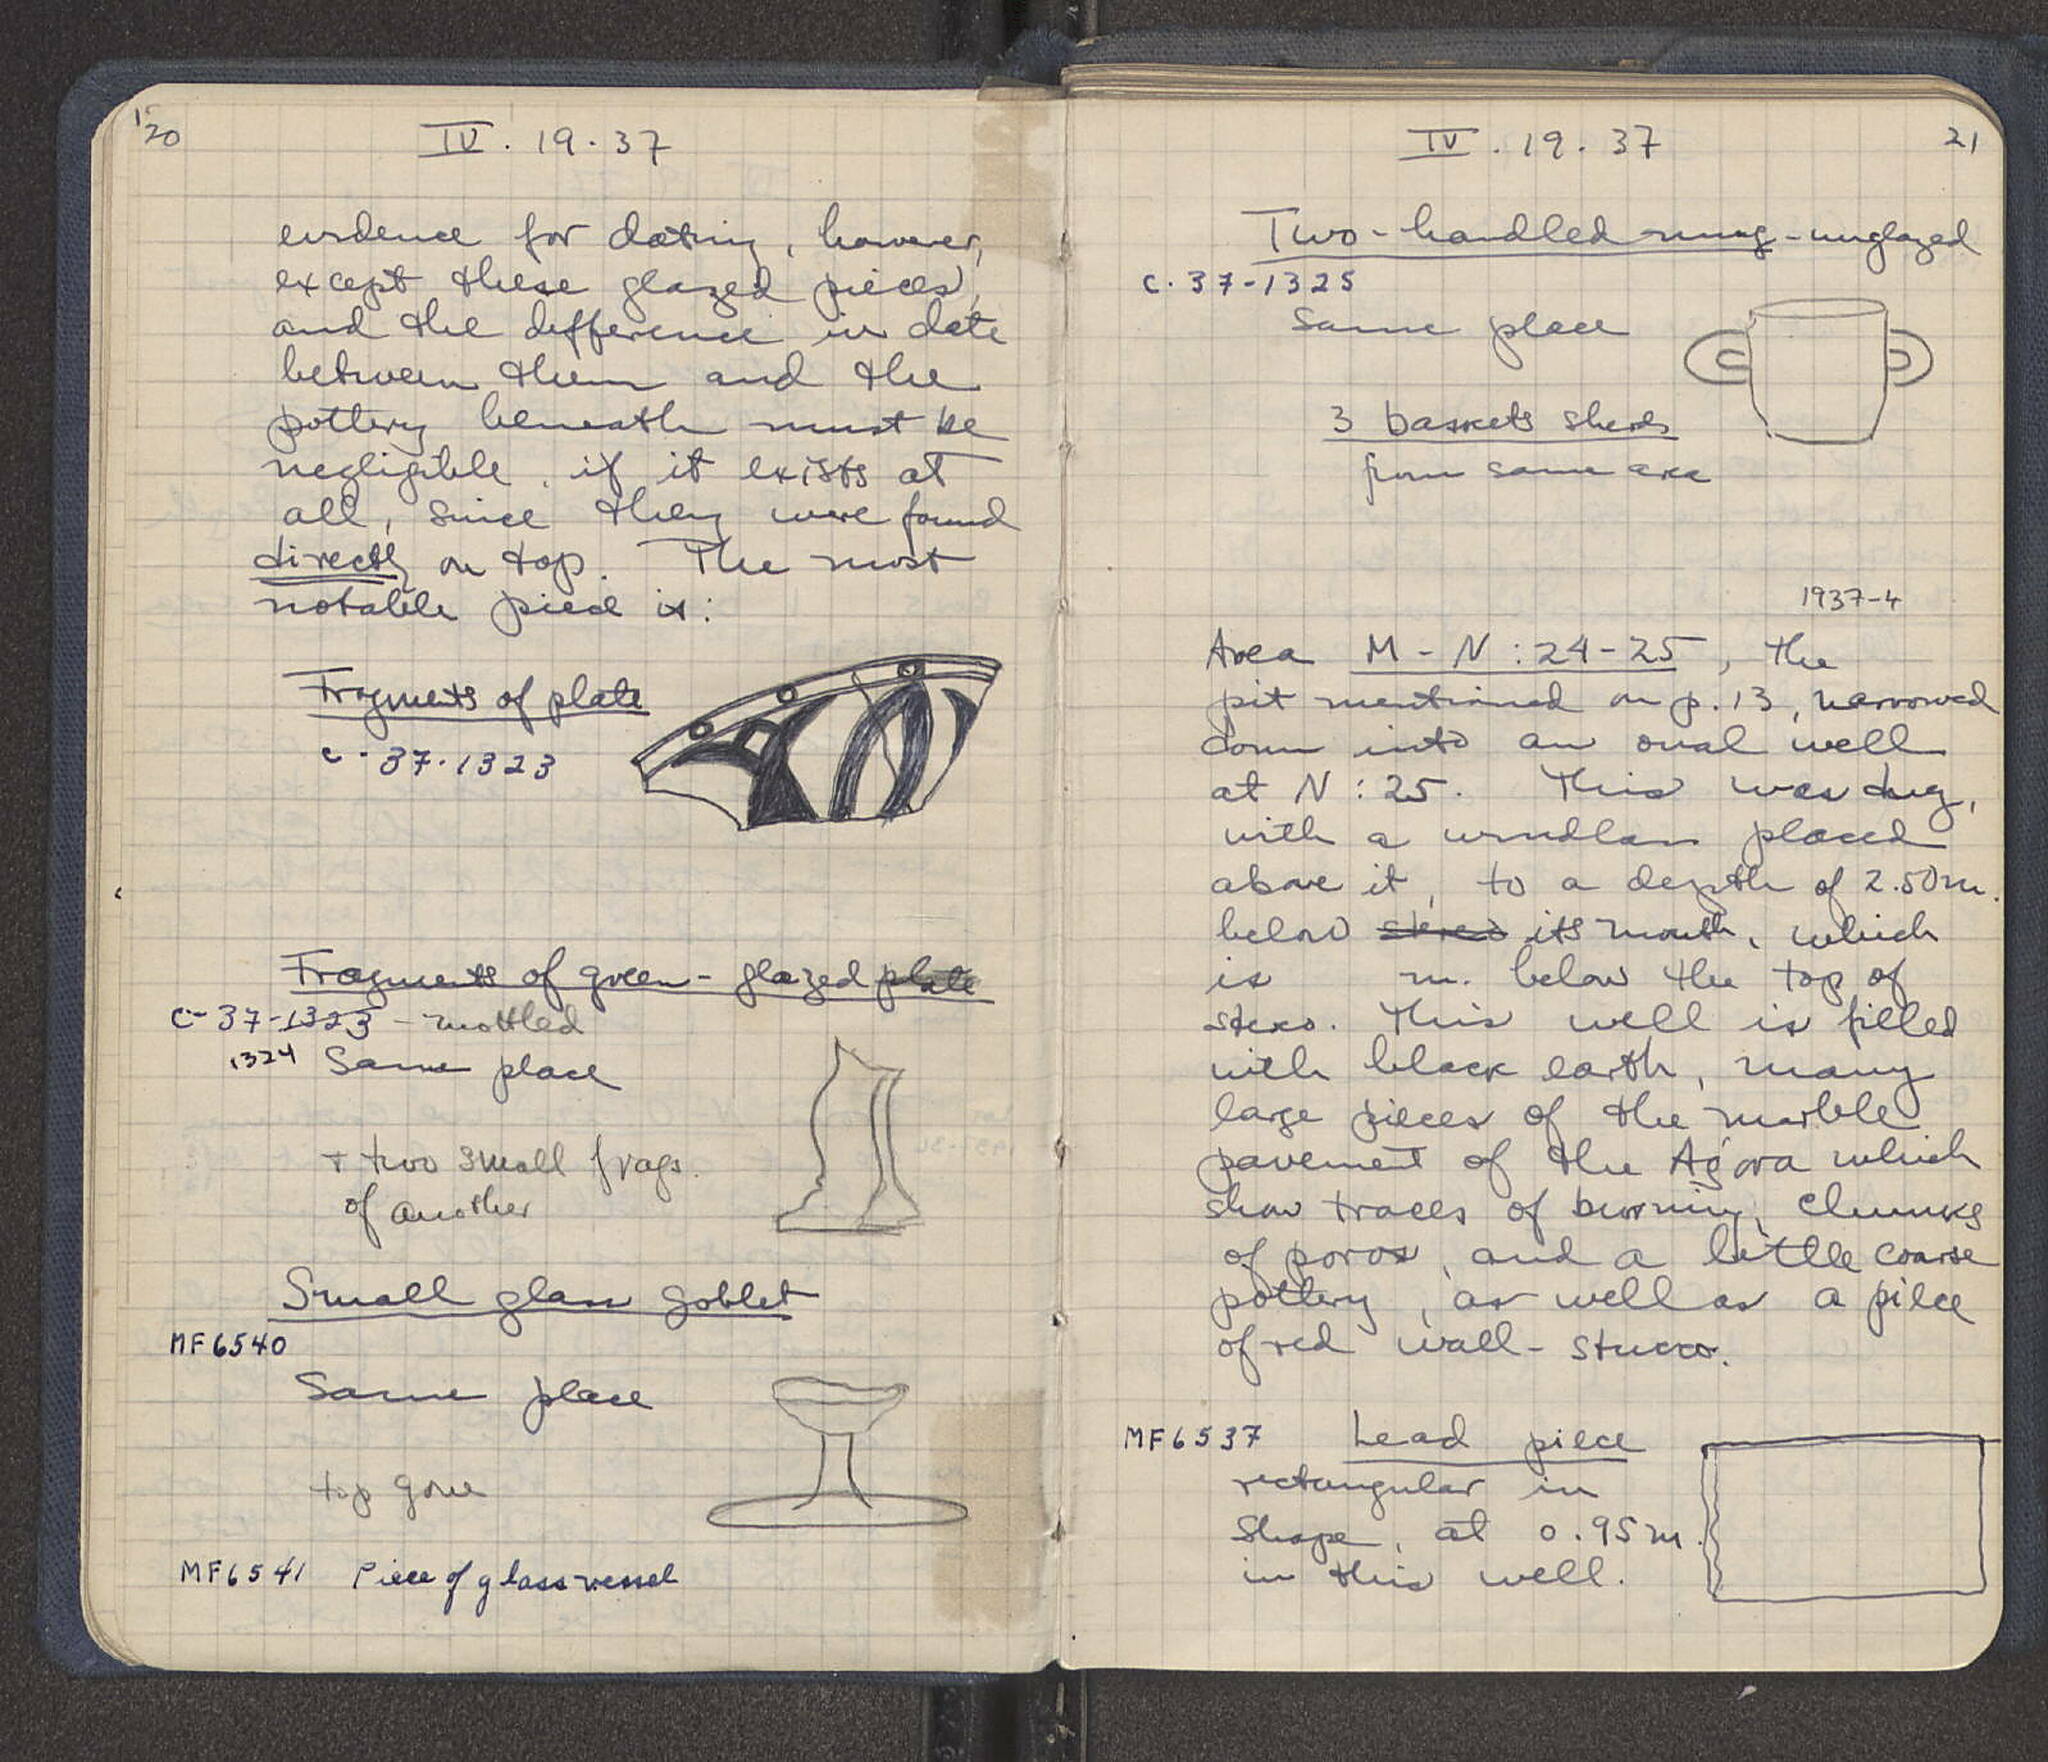 20
IV. 19. 37
evidence for dating, however,
except these glazed pieces,
and the difference in date
between them and the
pottery beneath must be
negligible, if it exists at
all, since they were found
directly on top. The most
notable piece is:
Fragments of plate
C-37-1323
Fragments of green-glazed plate
C-37-1323 - mottled
1324 Same place
+ two small frags.
of another
Small glass goblet
MF6540
Same place
top gone
MF6541 Piece of glass vessel
IV. 19. 37
21
Two-handled mug - unglazed
C-37-1325
Same place
3 baskets sherds
from same area
1937-4
Area M-N:24-25, the
pit mentioned on p. 13, narrowed
down into an oval well
at N:25. This was dug,
with a windlass placed
above it, to a depth of 2.50 m.
below stereo its mouth, which
is m. below the top of
stereo. This well is filled
with black earth, many
large pieces of the marble
pavement of the Agora which
show traces of burning, chunks
of poros, and a little coarse
pottery, as well as a piece
of red wall-stucco.
MF6537 Lead piece
rectangular in
shape, at 0.95 m.
in this well.